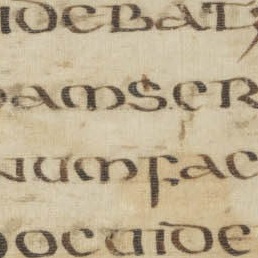 IDEBAT
AMS.CR
NUMFAC
OCUIDE